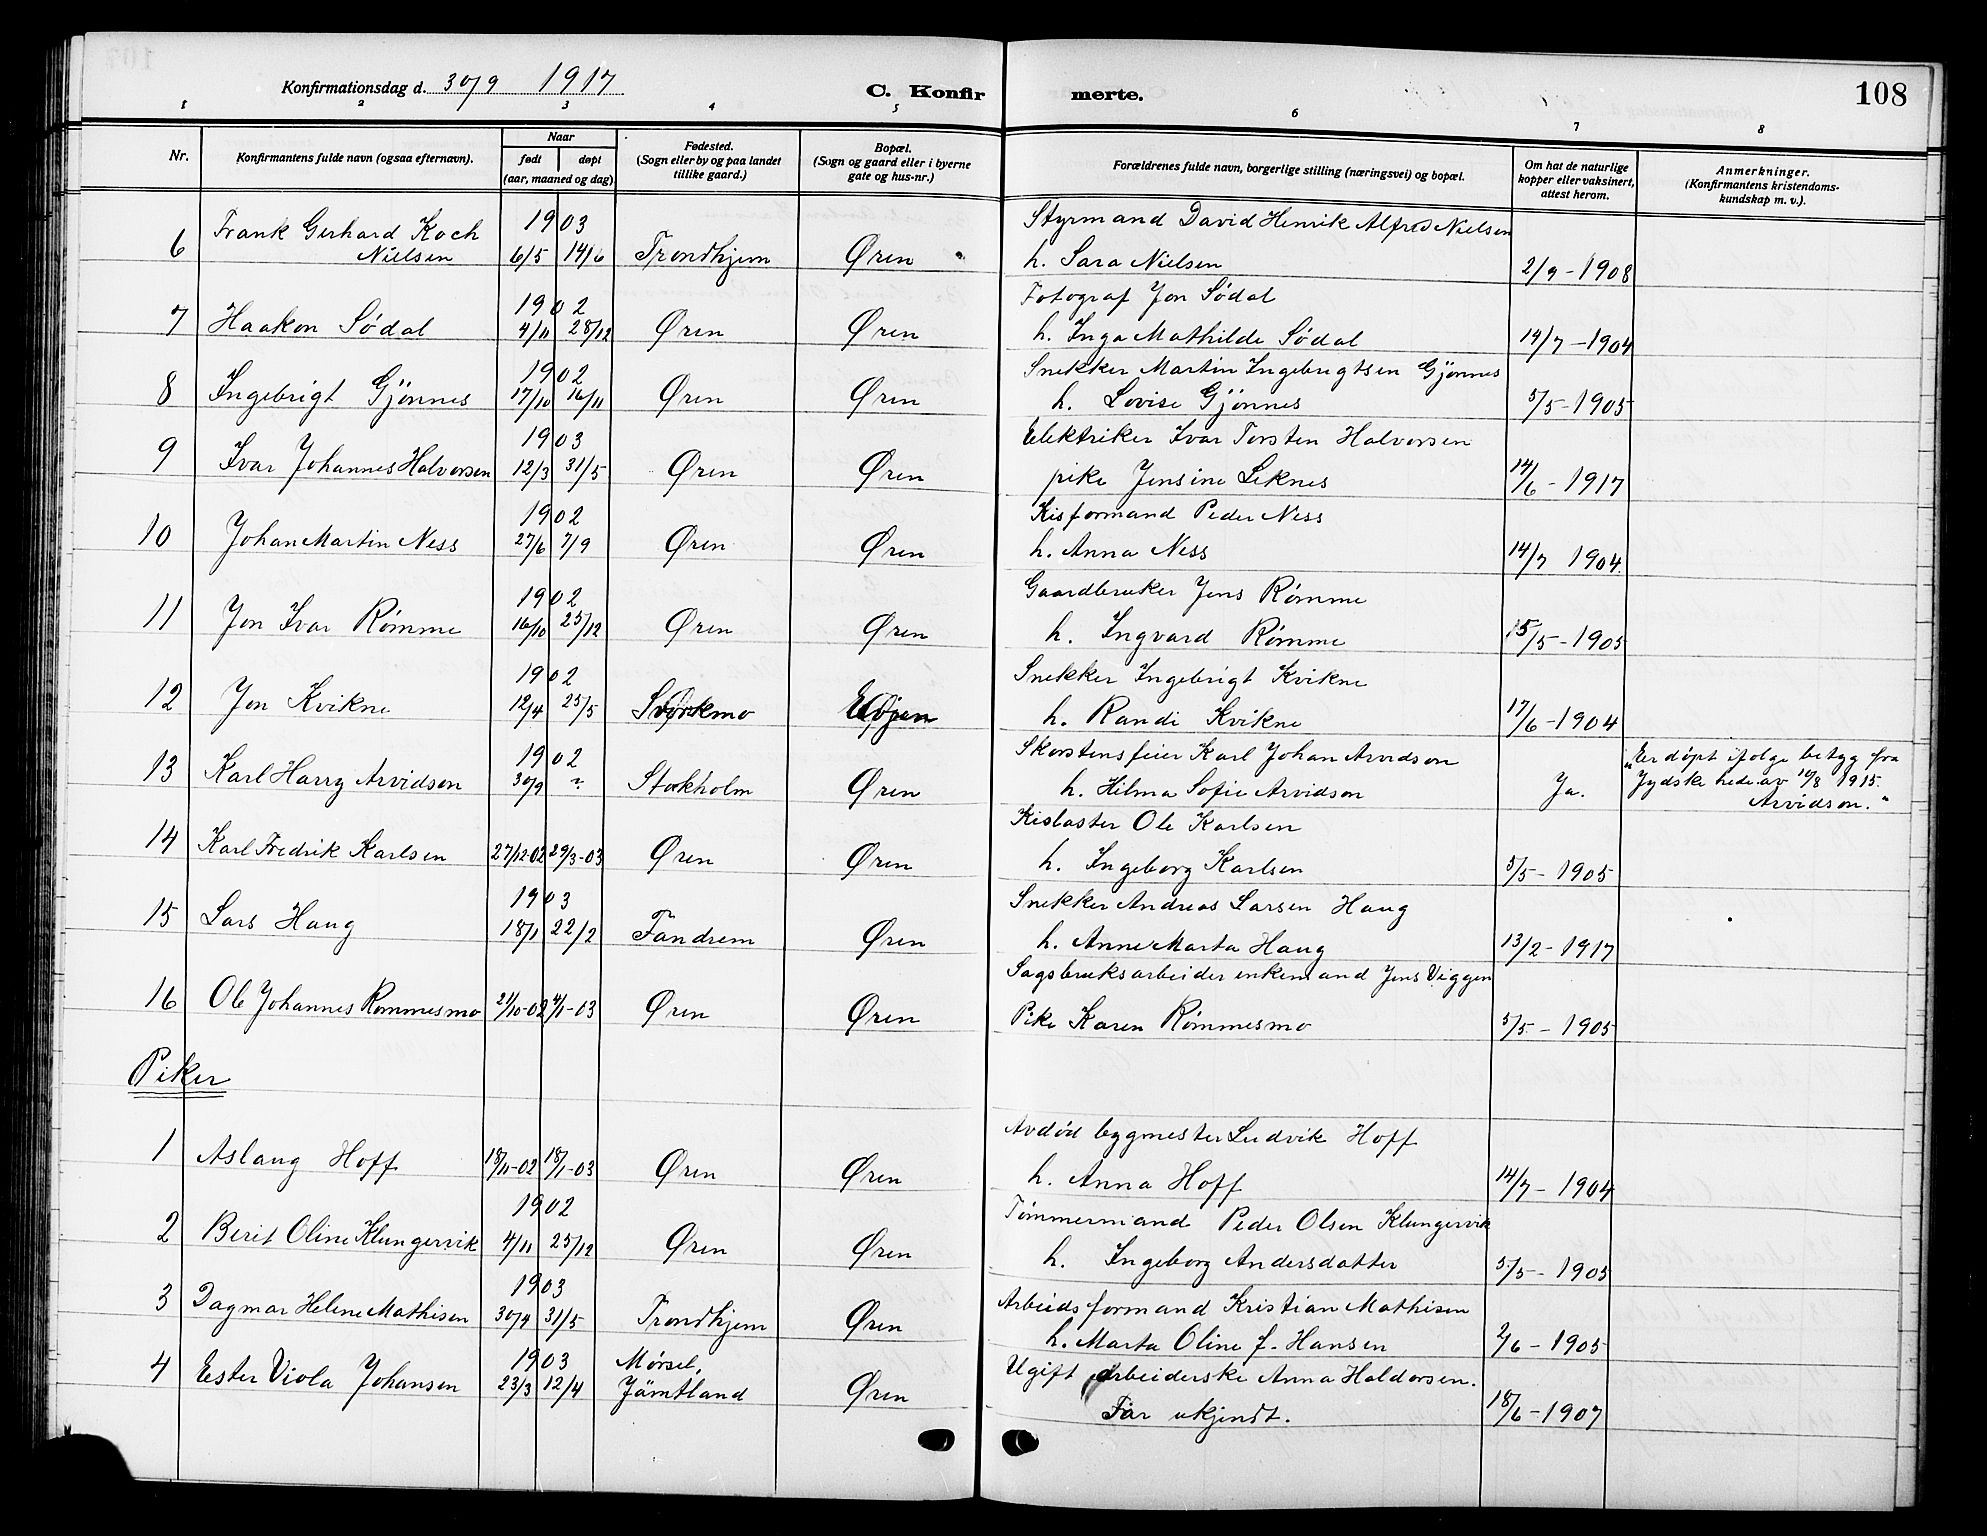 Konfirmationsdag d. 30/9 1917
C. Konfirmerte.
108
1 2 3 4 5 6 7 8
Nr.
Konfirmantens fulde navn (ogsaa efternavn).
Naar
født døpt
(aar, maaned og dag)
Fødested.
(Sogn eller by og paa landet
tillike gaard.)
Bopæl.
(Sogn og gaard eller i byerne
gate og hus-nr.)
Forældrenes fulde navn, borgerlige stilling (næringsvei) og bopæl.
Om hat de naturlige
kopper eller vaksinert,
attest herom.
Anmerkninger.
(Konfirmantens kristendoms-
kundskap m. v.).
Frank Gerhard Koch 1903 Styrmand David Henrik Alfred Nielsen
6 Nielsen 6/5 14/6 Trondhjem Øren h. Sara Nielsen 2/9-1908
1902 Fotograf Jon Sødal
7 Haakon Sødal 4/11 28/12 Øren Øren h. Inga Mathilde Sødal 14/7-1904
1902 Snekker Martin Ingebrigtsen Gjönnes
8 Ingebrigt Gjönnes 17/10 16/11 Øren Øren h. Lovise Gjönnes 5/5-1905
1903 Elektriker Ivar Torsten Halvorsen
9 Ivar Johannes Halvorsen 12/3 31/5 Øren Øren pike Jensine Leknes 14/6-1917
1902 Kisformand Peder Ness
10 Johan Martin Ness 27/6 7/9 Øren Øren h. Anna Ness 14/7 1904.
1902 Gaardbruker Jens Rømme
11 Jon Ivar Rømme 16/10 25/12 Øren Øren h. Ingvard Rømme 15/5-1905
1902 Snekker Ingebrigt Kvikne
12 Jon Kvikne 12/4 25/5 h. Randi Kvikne 17/6-1904
1902 Skorstensfeier Karl Johan Arvidson "Er døpt ifølge betyg fra
13 Karl Harry Arvidson 30/9 ? Stockholm Øren h. Hilma Sofie Arvidson Ja. Jydske hede av 10/8 1915.
Arvidson."
Kislaster Ole Karlsen
14 Karl Fredrik Karlsen 27/12-02 29/3-03 Øren Øren h. Ingeborg Karlsen 5/5-1905
1903 Snekker Andreas Larsen Haug
15 Lars Haug 18/1 22/2 Fandrem Øren h. Anne Marta Haug 13/2-1917
Sagsbruksarbeider enkemand Jens Viggen
16 Ole Johannes Rømmesmo 21/10-02 4/1-03 Øren Øren Pike Karen Rømmesmo 5/5-1905
Piker
Avdød bygmester Ludvik Hoff
1 Aslaug Hoff 18/11-02 18/1-03 Øren Øren h. Anna Hoff 14/7-1904
1902 Tømmermand Peder Olsen Klungervik
2 Berit Oline Klungervik 4/11 25/12 Øren Øren h. Ingeborg Andersdatter 5/5-1905
1903 Arbeidsformand Kristian Mathisen
3 Dagmar Helene Mathisen 30/4 31/5 Trondhjem Øren h. Marta Oline f. Hansen 2/6-1905
1903 Mørsel, Ugift arbeiderske Anna Haldorsen.
4 Ester Viola Johansen 23/3 12/4 Jämtland Øren Far ukjendt. 18/6-1907